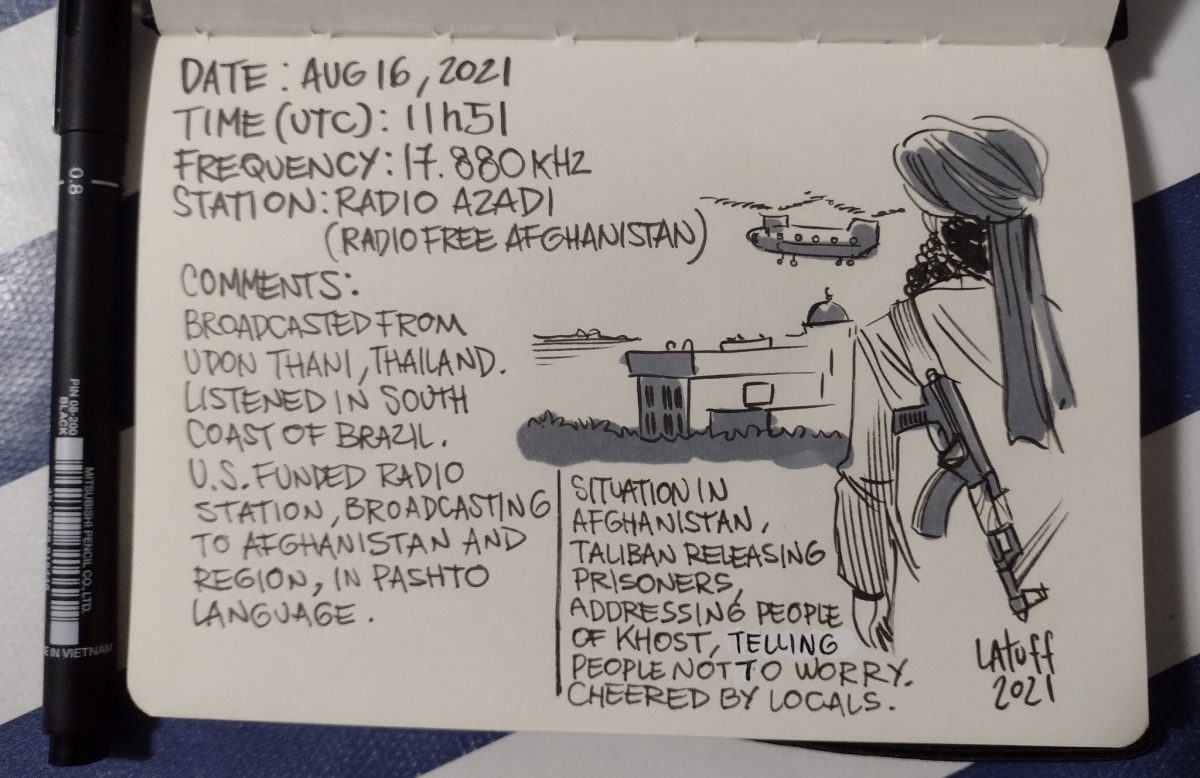 DATE: AUG 16, 2021
TIME (UTC): 11h51
FREQUENCY: 17.880 KHZ
STATION: RADIO AZADI
(RADIO FREE AFGHANISTAN)
COMMENTS:
BROADCASTED FROM
UDON THANI, THAILAND.
LISTENED IN SOUTH
COAST OF BRAZIL.
U.S. FUNDED RADIO
STATION, BROADCASTING
TO AFGHANISTAN AND
REGION, IN PASHTO
LANGUAGE.
SITUATION IN
AFGHANISTAN,
TALIBAN RELEASING
PRISONERS,
ADDRESSING PEOPLE
OF KHOST, TELLING
PEOPLE NOT TO WORRY.
CHEERED BY LOCALS.
LATUFF
2021
0.8
PIN 08-200
BLACK
MITSUBISHI PENCIL CO., LTD.
E IN VIETNAM